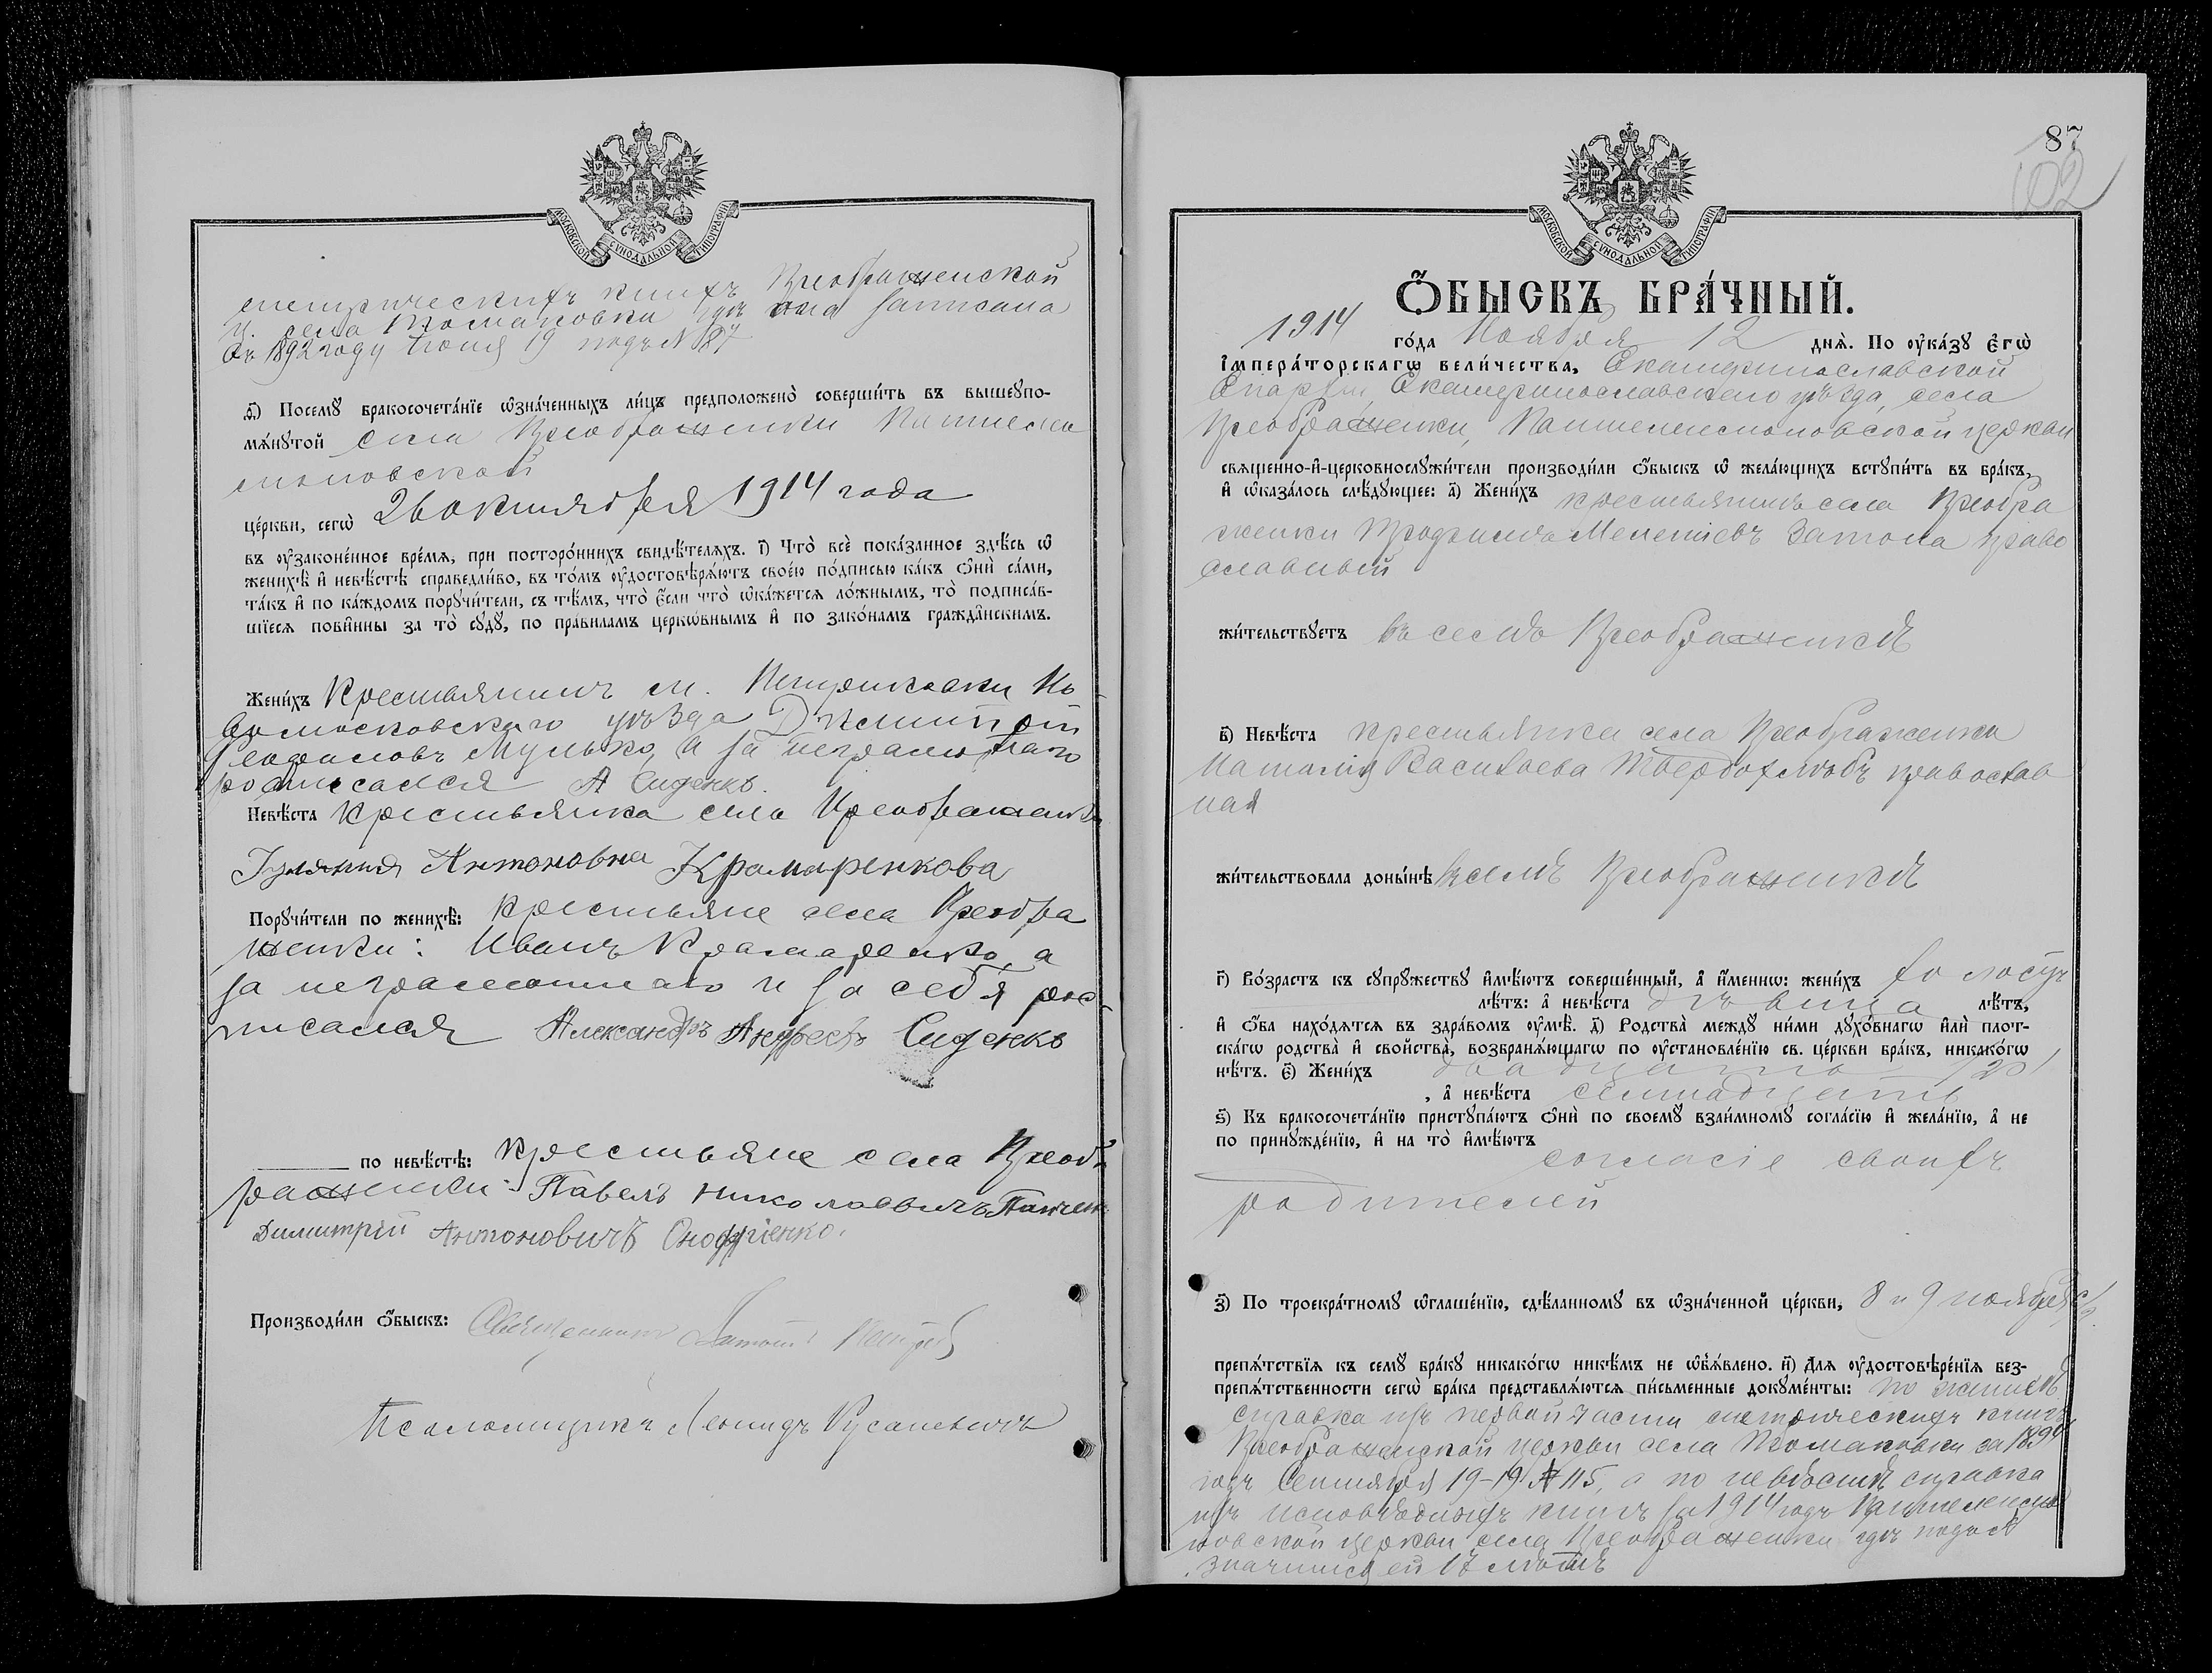 МОСКОВСКОЙ СѴНОДАЛЬНОЙ ТИПОГРАФІИ
метрическихъ книгъ Преображенской
ц. села Томаковки гдѣ она записана
въ 1892 году Іюня 19 подъ № 87
д҃) Посемꙋ бракосочета́нїе ѡ҆зна́ченныхъ ли́цъ предположено̀ соверши́ть въ вышеꙋпо-
мѧ́нꙋтой села Преображенки Пантелеи
моновской
це́ркви, сегѡ̀ 26 октября 1914 года
въ ᲂу҆зако́ненное вре́мѧ, при посторо́ннихъ свидѣ́телѧхъ. і҃) Что̀ всѐ пока́занное здѣ́сь ѡ҆
женихѣ̀ и҆ невѣ́стѣ справедли́во, въ то́мъ ᲂу҆достовѣрѧ́ютъ свое́ю по́дписью ка́къ ѻ҆нѝ са́ми,
та́къ и҆ по ка́ждомъ порꙋчи́тели, съ тѣ́мъ, что̀ є҆́сли что̀ ѡ҆ка́жетсѧ ло́жнымъ, то̀ подписа́в-
шїесѧ пови́нны за то̀ сꙋдꙋ̀, по пра́виламъ церкѡ́внымъ и҆ по зако́намъ гражда́нскимъ.
Жени́хъ Крестьянинъ м. Петриковки Но
вомосковскаго уѣзда Димитрій
Феофиловъ Мулько, а за неграмотнаго
росписался А Сиденко.
Невѣ́ста крестьянка села Преображенки
Іулянія Антоновна Крамаренкова
Порꙋчи́тели по женихѣ̀: крестьяне села Преобра
женки: Иванъ Крамаренко, а
за неграмотнаго и за себя рос
писался Александръ Андреевъ Сиденко
по невѣ́стѣ: крестьяне села Преоб
раженки: Павелъ Николаевичъ Панчен
Димитрій Антоновичъ Онофріенко.
Производи́ли ѻ҆́быскъ: Священникъ
Псаломщикъ Леонидъ Русаневичъ
87
102
МОСКОВСКОЙ СѴНОДАЛЬНОЙ ТИПОГРАФІИ
Ѻ҆́БЫСКЪ БРА́ЧНЫЙ.
1914 го́да Ноября 12 днѧ̀. По ᲂу҆ка́зꙋ Є҆гѡ̀
І҆мпера́торскагѡ вели́чества, Екатеринославской
Епархіи, Екатеринославскаго уѣзда, села
Преображенки, Пантелеимоновской церкви
свѧще́нно-и҆-церковнослꙋжи́тели производи́ли ѻ҆́быскъ ѡ҆ жела́ющихъ встꙋпи́ть въ бра́къ,
и҆ ѡ҆каза́лось слѣ́дꙋющее: а҃) Жени́хъ крестьянинъ села Преобра
женки Трофимъ Мелетіевъ Затона право
славный
жи́тельствꙋетъ въ селѣ Преображенкѣ
в҃) Невѣ́ста крестьянка села Преображенки
Наталія Васильева Твердохлѣбъ православ
ная
жи́тельствовала доны́нѣ въ селѣ Преображенкѣ
г҃) Во́зрастъ къ сꙋпрꙋ́жествꙋ и҆мѣ́ютъ соверше́нный, а҆ и҆́меннѡ: жени́хъ холостъ
лѣ́тъ: а҆ невѣ́ста дѣвица лѣ́тъ,
и҆ ѻ҆́ба нахо́дѧтсѧ въ здра́вомъ ᲂу҆мѣ̀. д҃) Родства̀ междꙋ̀ ни́ми дꙋхо́внагѡ и҆лѝ плот-
ска́гѡ родства̀ и҆ сво́йства̀, возбранѧ́ющагѡ по ᲂу҆становле́нїю св. це́ркви бра́къ, никако́гѡ
нѣ́тъ. є҃) Жени́хъ двадцать 20
, а҆ невѣ́ста семнадцать
ѕ҃) Къ бракосочета́нїю пристꙋпа́ютъ ѻ҆нѝ по своемꙋ̀ взаи́мномꙋ согла́сїю и҆ жела́нїю, а҆ не
по принꙋжде́нїю, и҆ на то̀ и҆мѣ́ютъ согласіе своихъ
родителей
з҃) По троекра́тномꙋ ѡ҆глаше́нїю, сдѣ́ланномꙋ въ ѡ҆зна́ченной це́ркви, 8 и 9 ноября с/г.
препѧ́тствїѧ къ семꙋ̀ бра́кꙋ никако́гѡ никѣ́мъ не ѡ҆б̾ѧ́влено. и҃) Длѧ ᲂу҆достовѣре́нїѧ без-
препѧ́тственности сегѡ̀ бра́ка представлѧ́ютсѧ пи́сьменные докꙋме́нты: по женихѣ
справка изъ первой части метрическихъ книгъ
Преображенской церкви села Томаковки за
годъ Сентября 19-19 № 115, а по невѣстѣ справка
изъ исповѣдныхъ книгъ за 1914 годъ Пантелеимо
новской церкви села Преображенки гдѣ подъ №
значится ей 17 лѣтъ